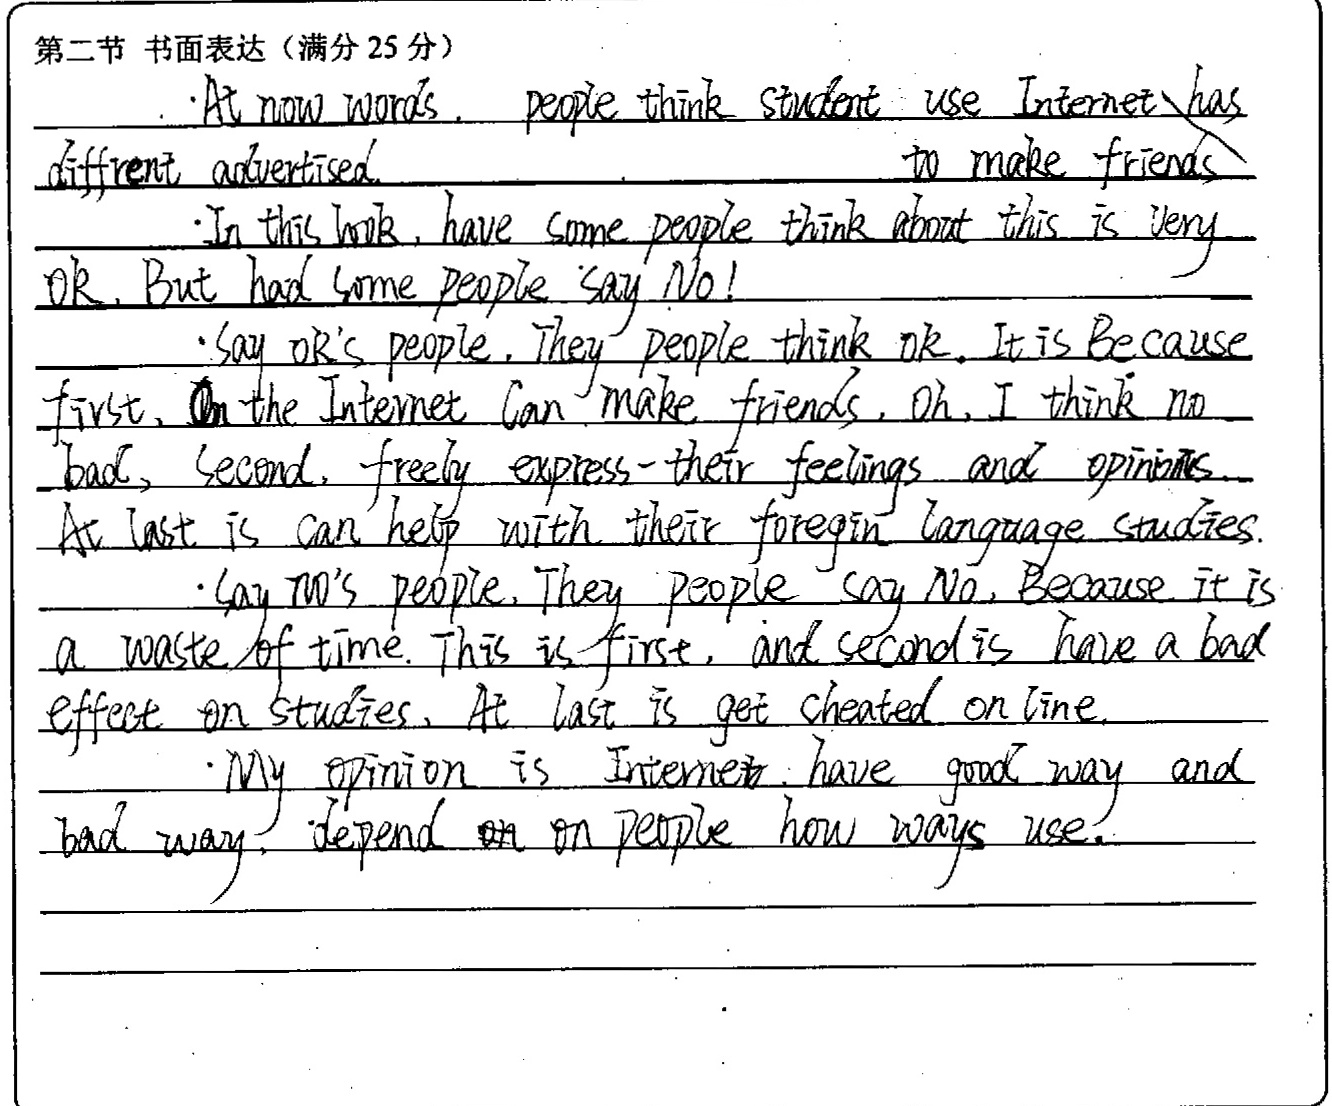 第二节 书面表达（满分 25 分）
·At now words. people think student use Internet has
diffrent advertised. to make friends
·In this look, have some people think about this is very
ok. But had some people say No!
·Say ok's people. They people think ok. It is Because
first. On the Internet Can make friends. Oh, I think no
bad, second. freely express their feelings and opinions.
At last is can help with their foregin language studies.
·Say no's people. They people say No. Because it is
a waste of time. This is first, and second is have a bad
effect on studies. At last is get cheated on line.
·My opinion is Internet have good way and
bad way. depend on on people how ways use.